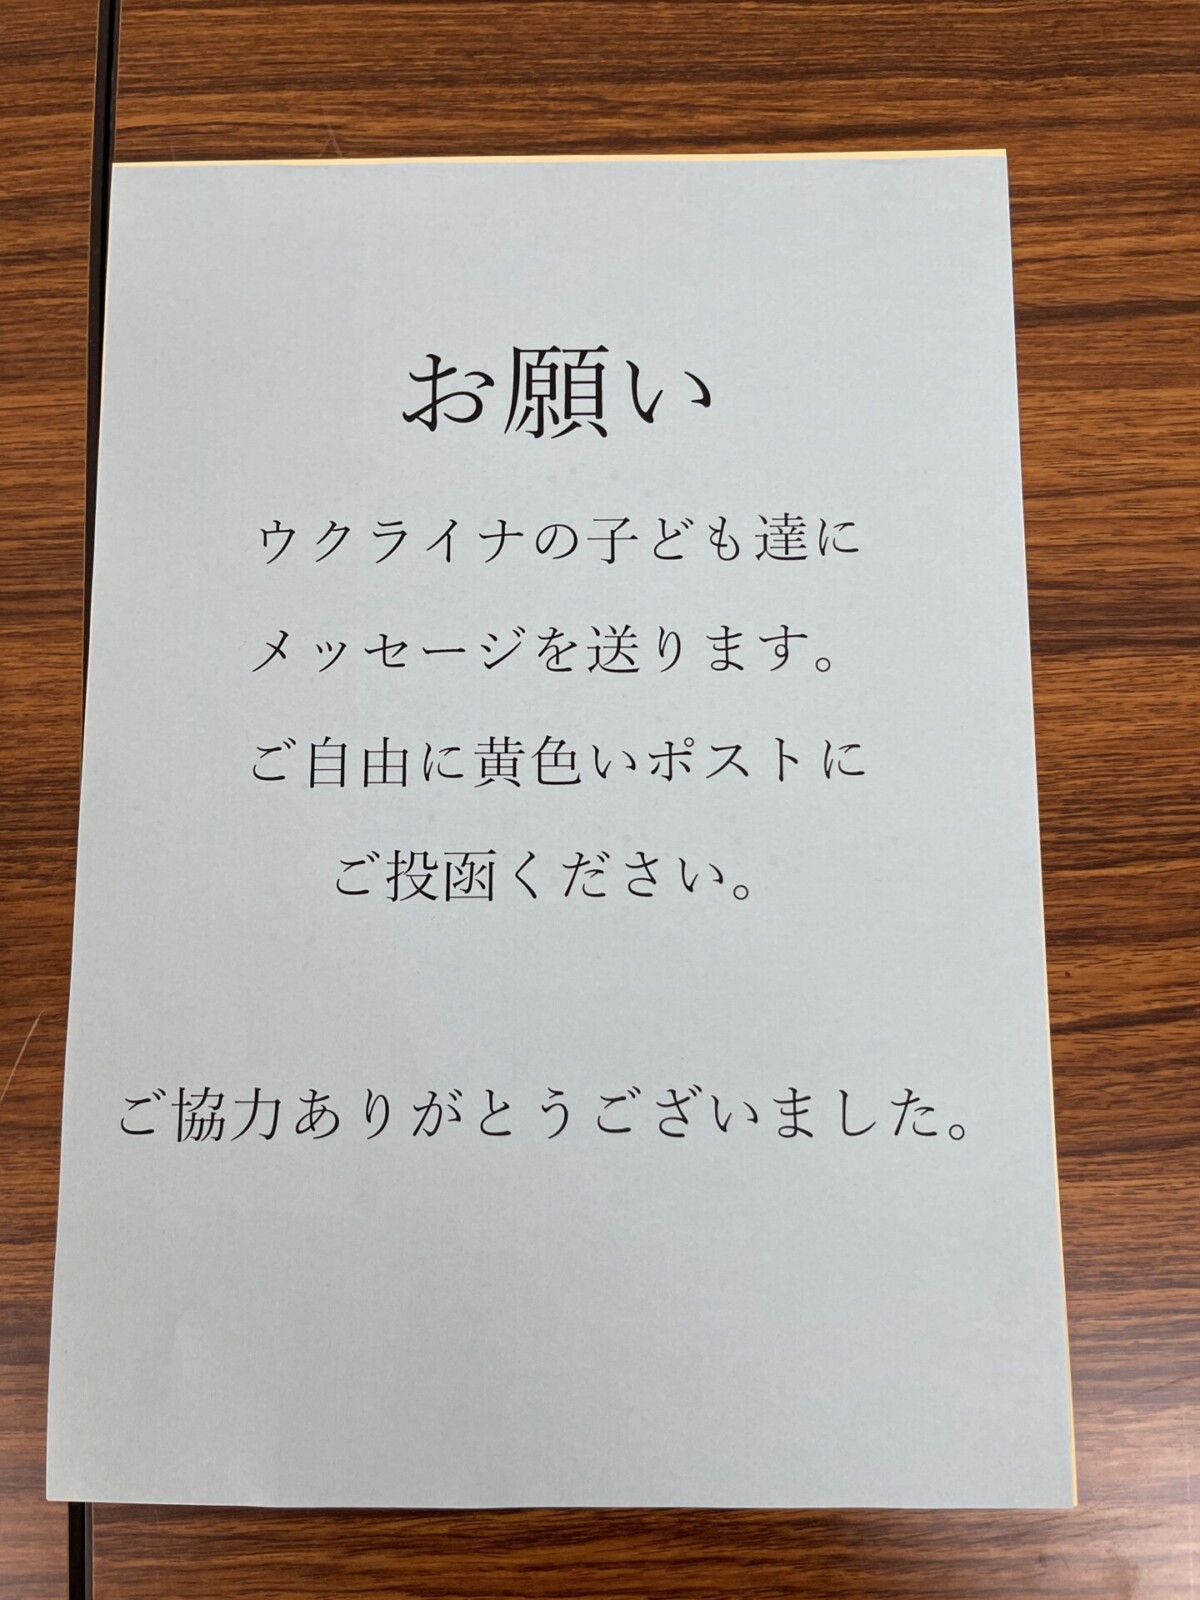 お願い
ウクライナの子ども達に
メッセージを送ります。
ご自由に黄色いポストに
ご投函ください。
ご協力ありがとうございました。